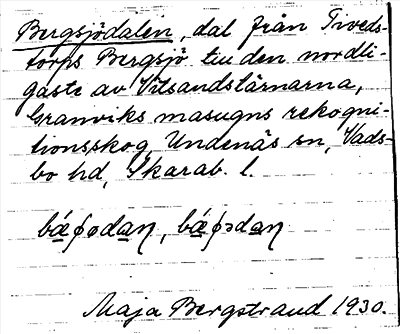 Bergsjödalen, dal från Tiveds-
torps Bergsjö till den nordli-
gaste av Vitsandstärnarna,
Granviks masugns rekogni-
tionsskog, Undenäs sn, Vads-
bo hd, Skarab. l.
Maja Bergstrand 1930.